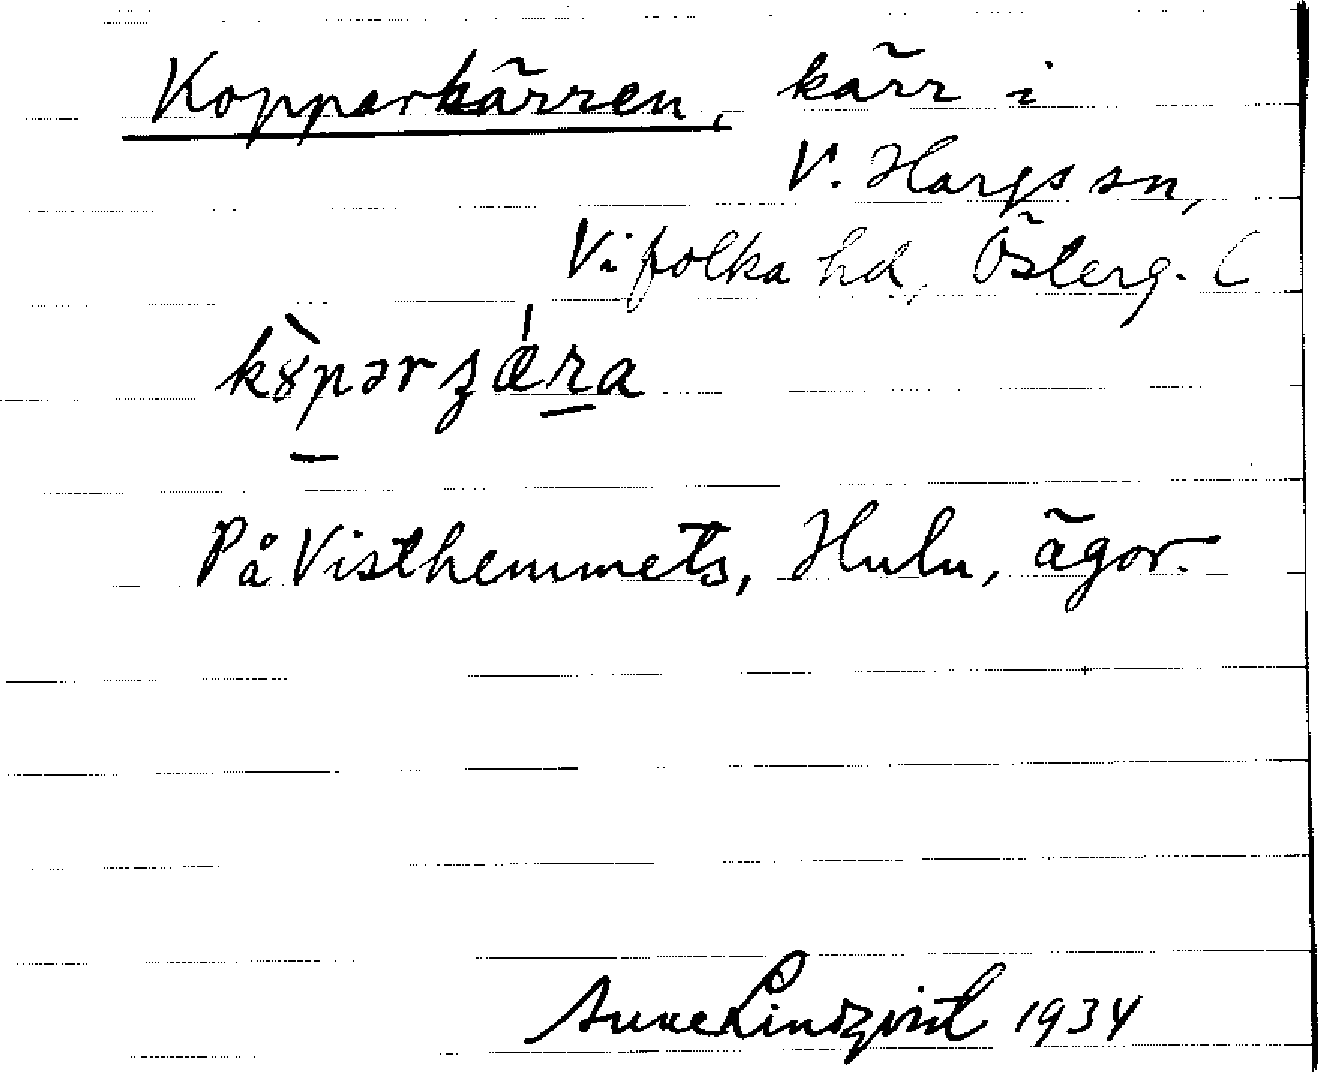 Kopparkärren, kärr i
V. Hargs sn,
Vifolka hd, Österg. (
kȣ̀pərʒǽra
På Visthemmets, Hulu, ägor.
Sune Lindqvist 1934